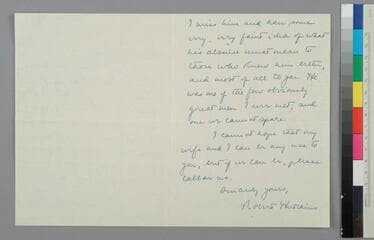 I miss him and have some
very, very faint idea of what
his absence must mean to
those who knew him better,
and most of all to you. He
was one of the few obviously
great men I ever met, and
one we cannot spare.
I cannot hope that my
wife and I can be any use to
you, but if we can be, please
call on us.
Sincerely yours,
Robert